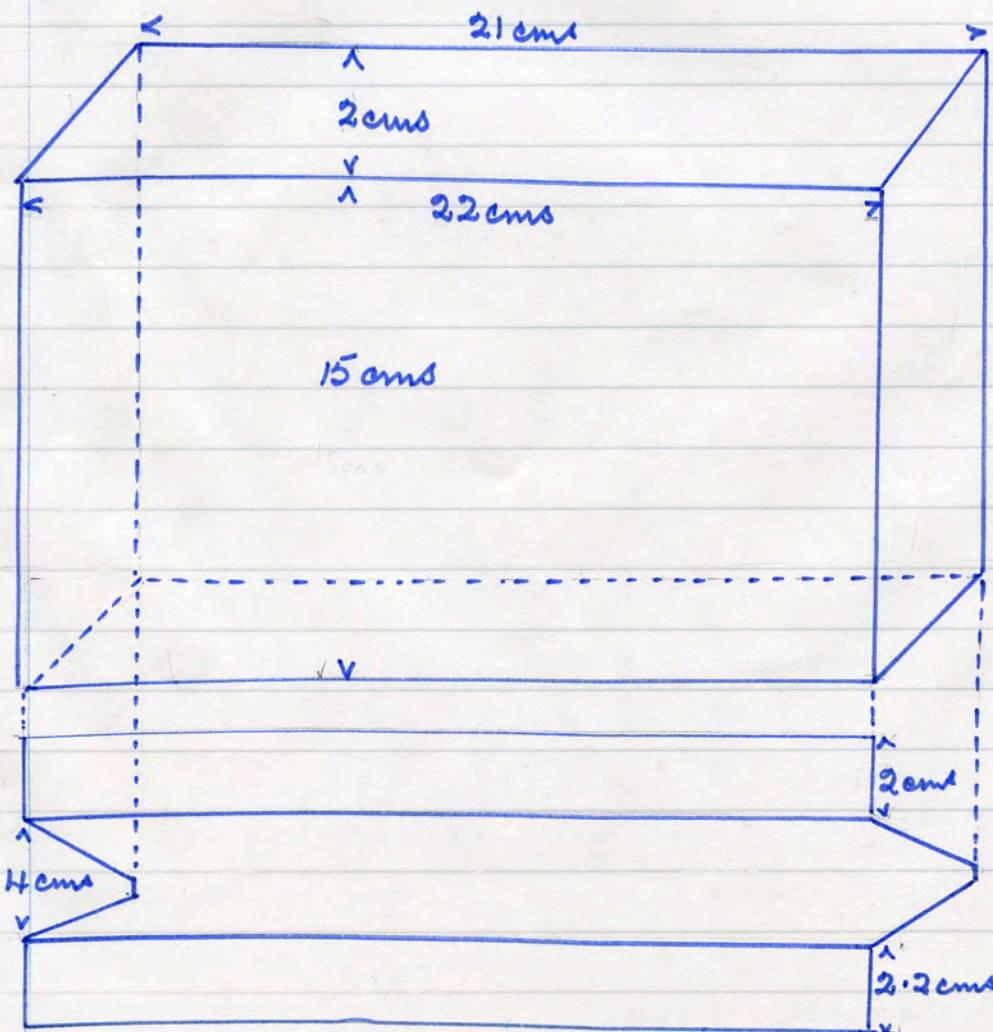 21 cms
2 cms
22 cms
15 cms
2 cms
4 cms
2.2 cms